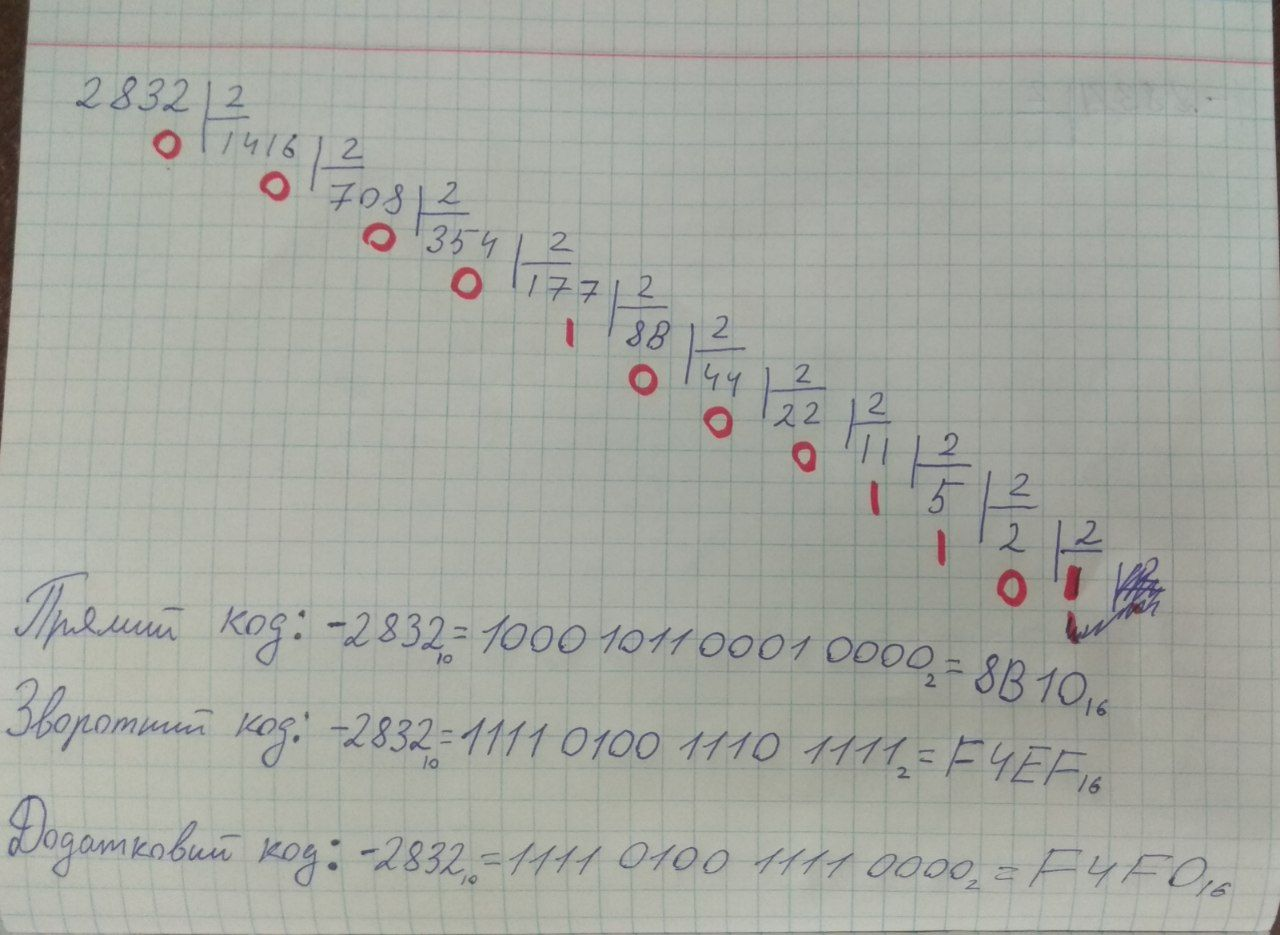 2832 2
0 1416 2
0 708 2
0 354 2
0 177 2
1 88 2
0 44 2
0 22 2
0 11 2
1 5 2
1 2 2
0 1
Прямий код: -2832₁₀ = 1000 1011 0001 0000₂ = 8B10₁₆
Зворотний код: -2832₁₀ = 1111 0100 1110 1111₂ = F4EF₁₆
Додатковий код: -2832₁₀ = 1111 0100 1111 0000₂ = F4F0₁₆